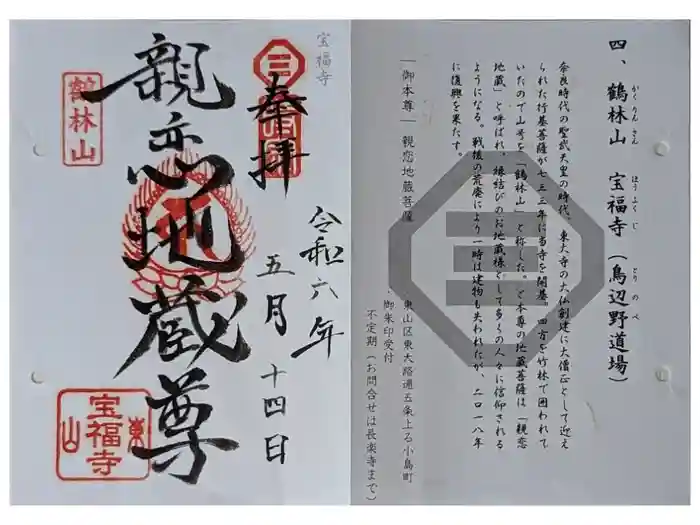 宝福寺
奉拝
令和六年
五月 十四日
親恋地蔵尊
鶴林山
東山
宝福寺
四、鶴林山 宝福寺(鳥辺野道場)
かくりんさん ほうふくじ とりのべ
奈良時代の聖武天皇の時代、東大寺の大仏創建に大僧正として迎え
られた行基菩薩が七三三年に当寺を開基。四方を竹林で囲われて
いたので山号を「鶴林山」と称した。ご本尊の地蔵菩薩は「親恋
地蔵」と呼ばれ、縁結びのお地蔵様として多くの人々に信仰される
ようになる。戦後の荒廃により一時は建物も失われたが、二〇一八年
に復興を果たす。
―御本尊― 親恋地蔵菩薩
東山区東大路通五条上る小島町
御朱印受付
不定期(お問合せは長楽寺まで)